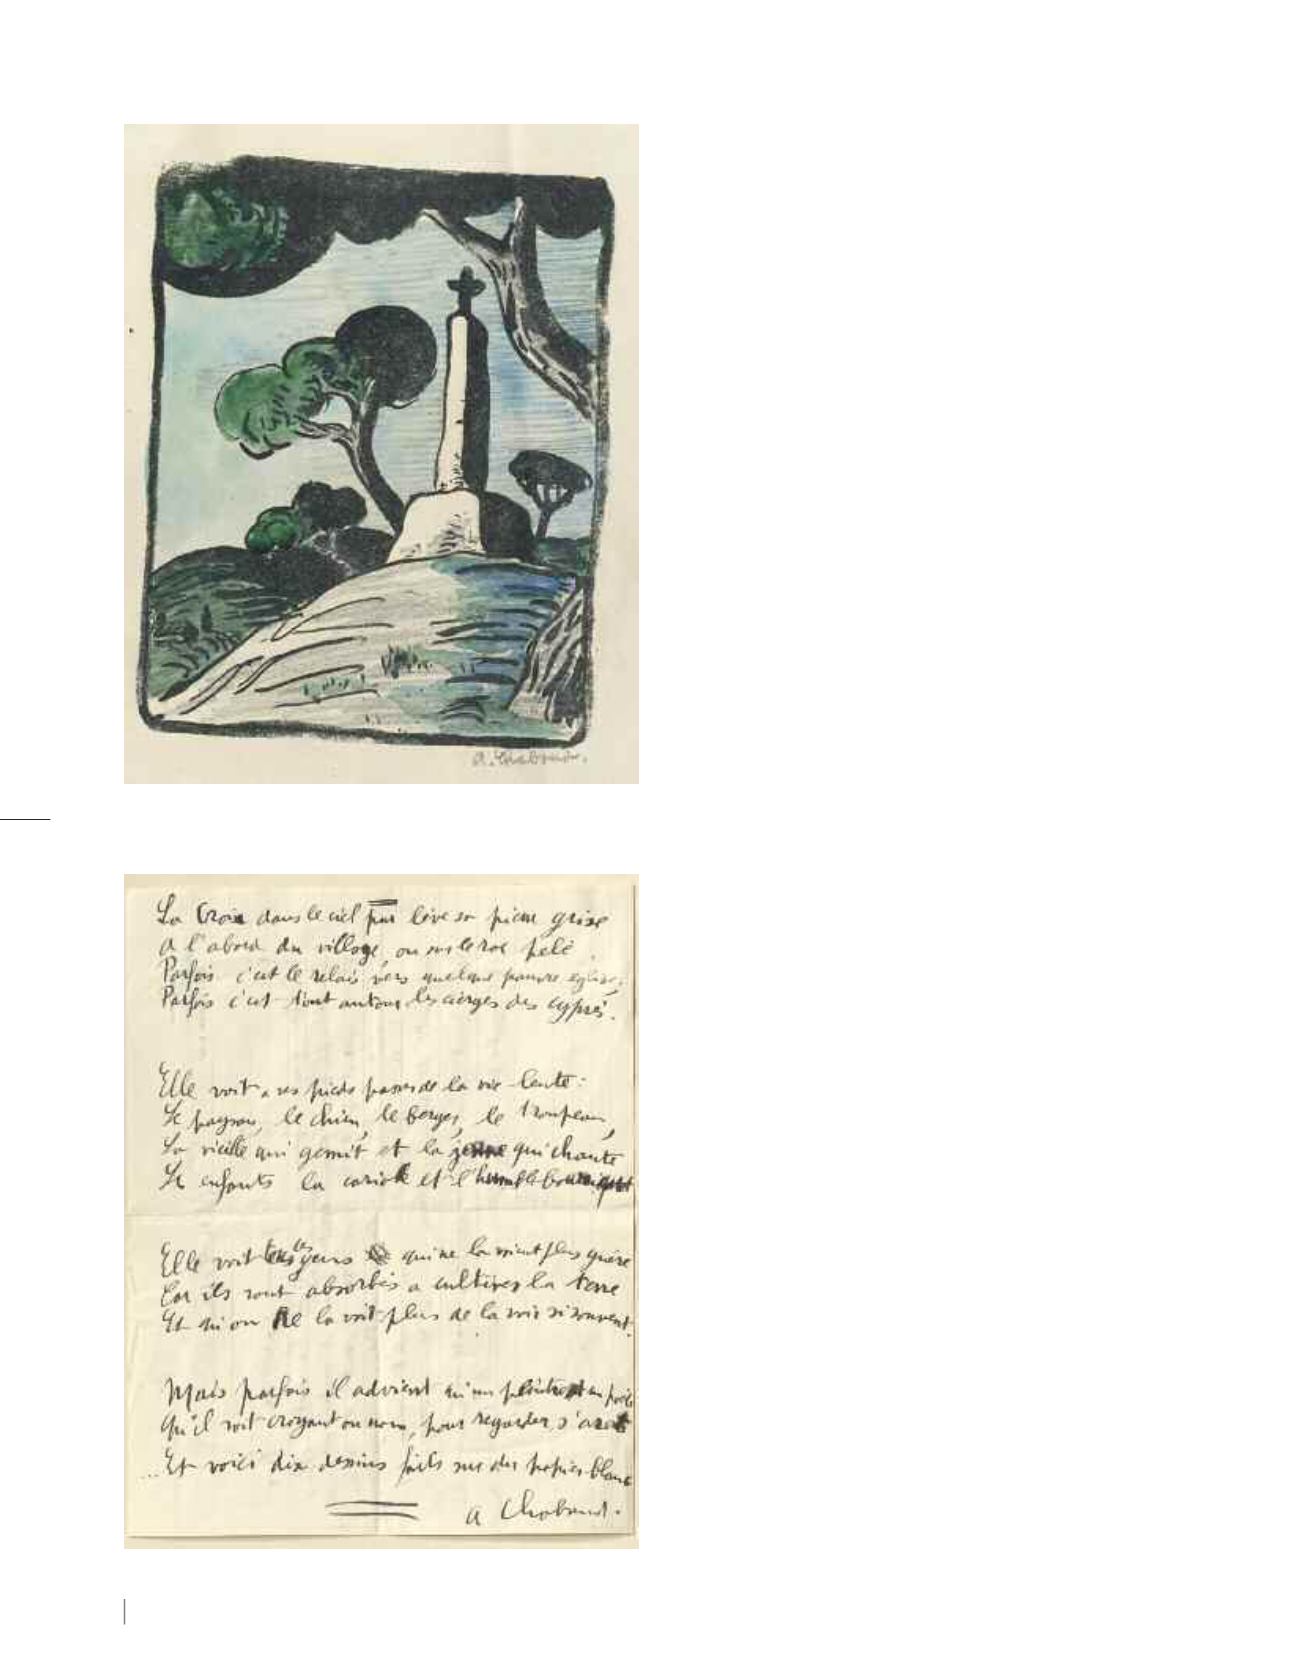 A. Chabaud.
La Croix dans le ciel pur lève sa pierre grise
A l'abord du village, ou sur le roc pelé.
Parfois c'est le relais vers quelque pauvre église;
Parfois c'est tout autour les cierges des cyprès.
Elle voit a ses pieds passer de la vie lente:
Le paysan, le chien, le berger, le troupeau,
La vieille qui gémit et la jeune qui chante
Le enfants la cariole et l'humble bourriquot
Elle voit tous les yeux qui ne la voient plus guère
Car ils sont absorbés a cultiver la terre
Et qu'on ne la voit plus de la voir si souvent.
Mais parfois il advient qu'un peintre un poète
Qu'il soit croyant ou non, pour regarder, s'arrête
...Et voici dix dessins faits sur du papier blanc
A Chabaud.